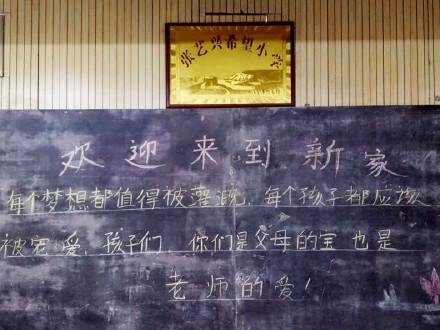 张艺兴希望小学
欢迎来到新家
每个梦想都值得被灌溉,每个孩子都应该
被宠爱,孩子们,你们是父母的宝也是
老师的爱!